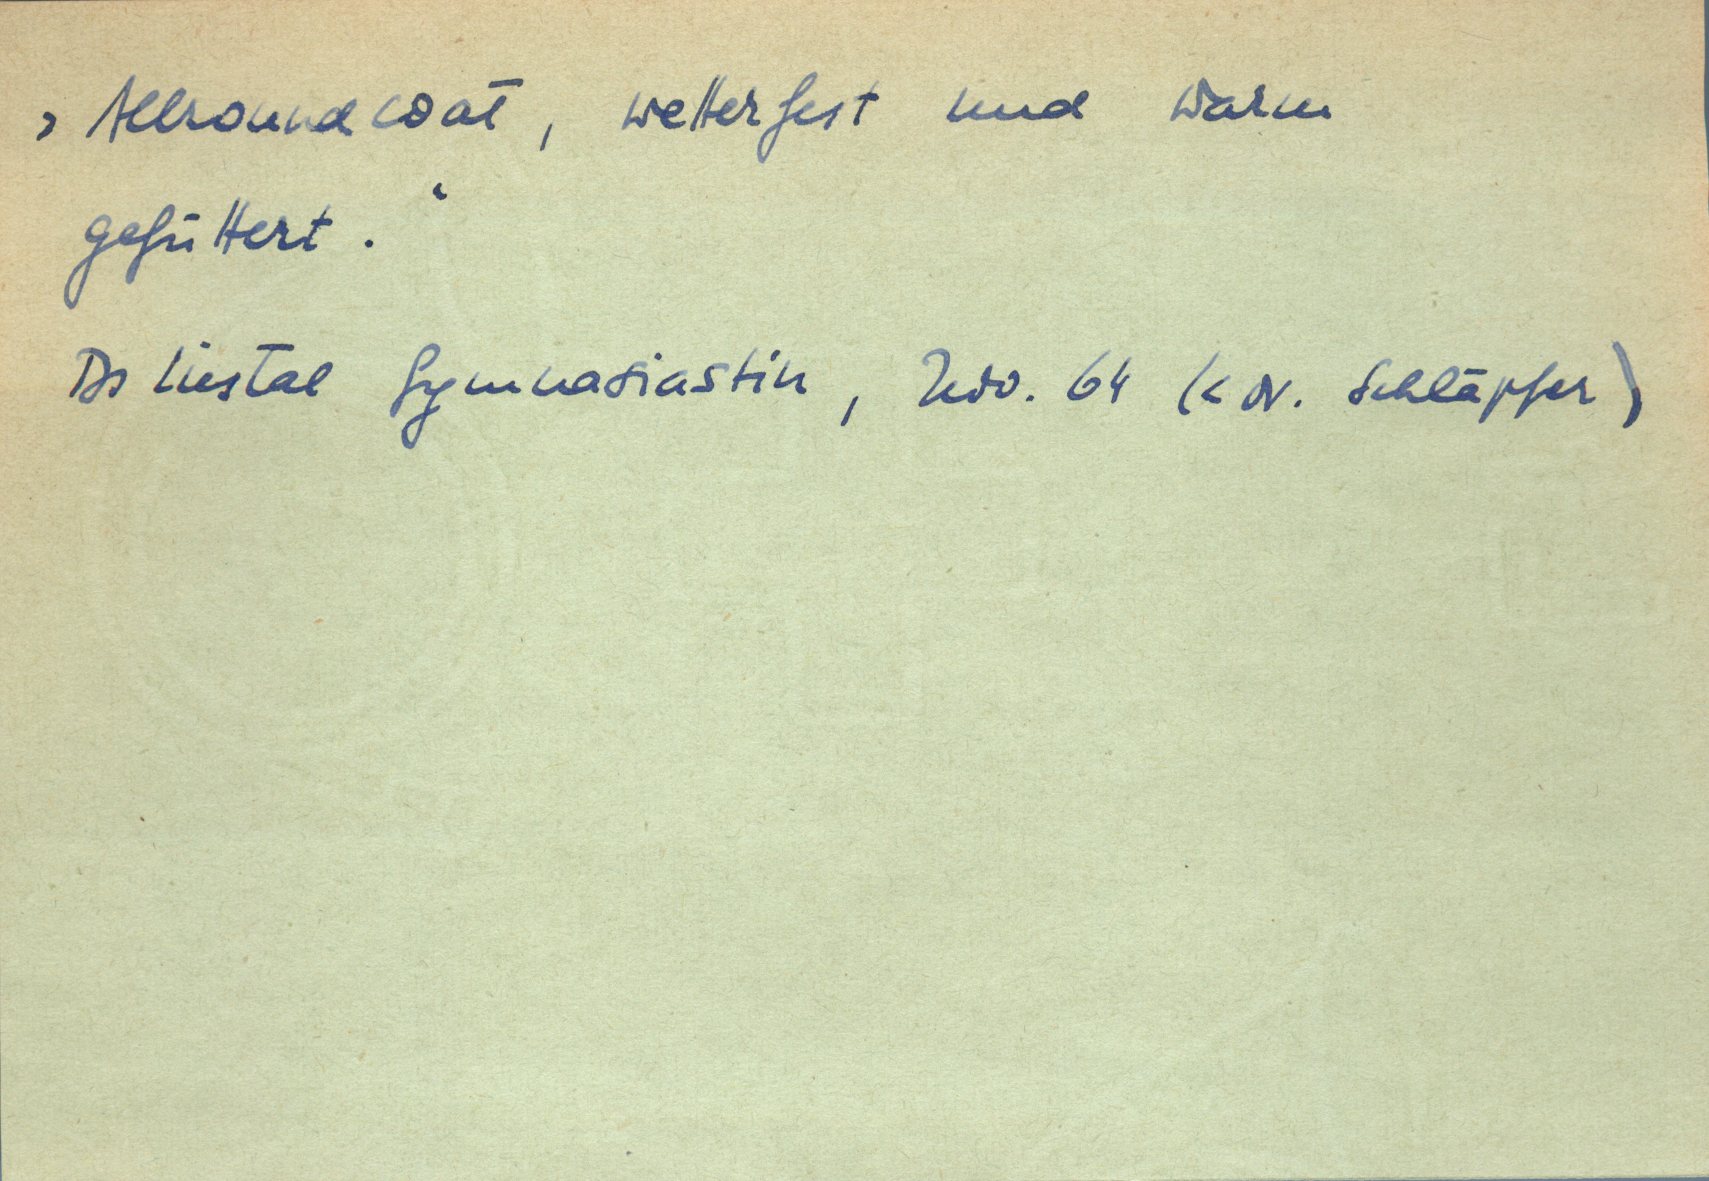 , Allroundcoat, wetterfest und warm
gefüttert.‘
Liestal Gymnasiastin, Nov. 64 (< Dr. Schläpfer)